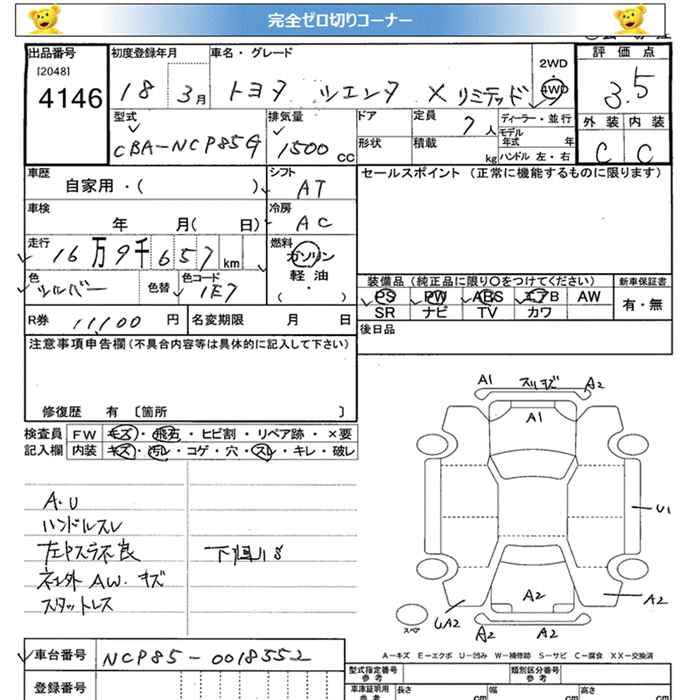 完全ゼロ切りコーナー
出品番号 初度登録年月 車名・グレード 2WD 評価点
[2048]
4146 18 3月 トヨタ シエンタ X リミテッド 4WD 3.5
型式 排気量 ドア 定員 7人 ディーラー・並行 外装 内装
モデル年式 年
CBA-NCP85G 1500cc 形状 積載 kg ハンドル 左・右 C C
車歴 シフト セールスポイント (正常に機能するものに限ります)
自家用・( ) AT
車検 冷房
年 月( 日) AC
走行 燃料
16万9千657km ガソリン
軽油
(・)
色 色替 色コード 装備品(純正品に限り〇をつけてください) 新車保証書
シルバー 1E7 PS PW ABS エアB AW 有・無
SR ナビ TV カワ
R券 11100円 名変期限 月 日 後日品
注意事項申告欄(不具合内容等は具体的に記入して下さい)
修復歴 有 〔箇所 〕
検査員 FW キズ・飛石・ヒビ割・リペア跡・×要
記入欄 内装 キズ・汚レ・コゲ・穴・スレ・キレ・破レ
A1 スリキズ A2
A1
A.U
ハンドルスレ
左Pスラ不良 下廻りS
社外AW.キズ
スタットレス
U1
A2
A2
UA2
A2 A2
スペア
A-キズ E-エクボ U-凹み W-補修跡 S-サビ C-腐食 XX-交換済
車台番号 NCP85-0018552
登録番号
型式指定番号 参考 類別区分番号 参考
車庫証明用 参考 長さ cm 幅 cm 高さ cm